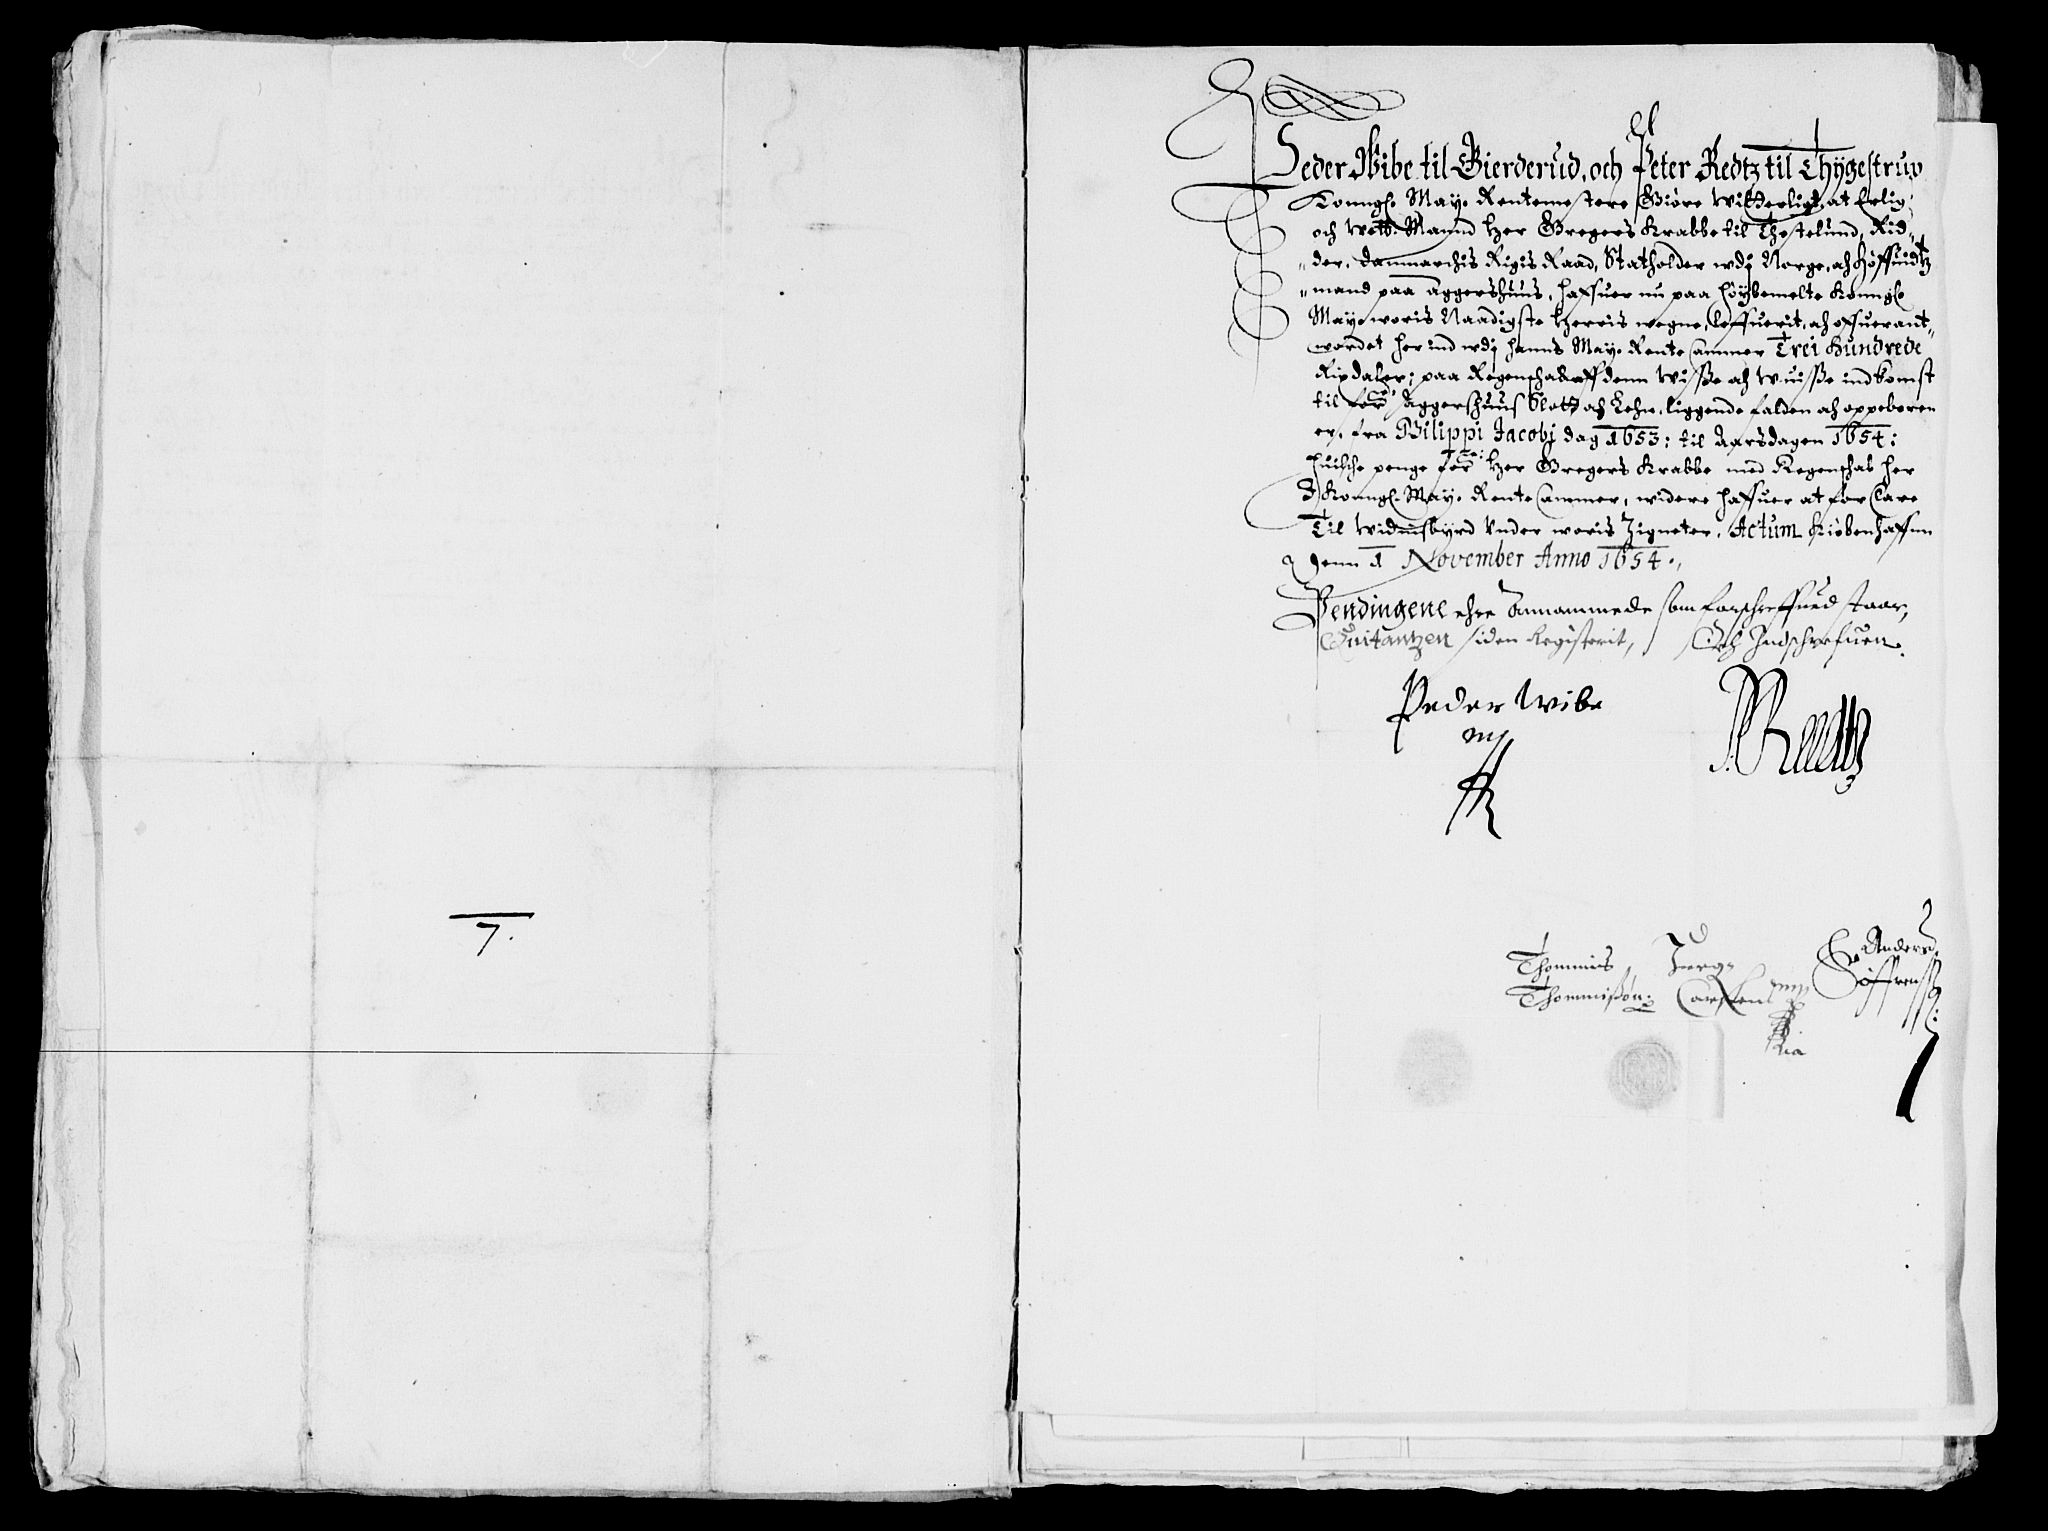 7.
Peder Wibe til Gierderud, och Peter Redtz til Thygestrup
Konngl: May: Rentemestere Giøre Witterligt, at Erlig
och Welb: Mannd Her Gregers Krabbe til Thostelund, Rid-
der, Danmarchis Rigis Raad, Statholder udj Norge, och Høffuidtz
mand paa Aggershuus, haffuer nu paa høybemelte Konngl:
May: woris Naadigste Herris wegne, lefuerit, och ofuerant-
wordet her ind udj hanns May: Rente Cammer Trei Hundrede
Rixdaler; paa Regenschab aff denn Wisse och Wuisse indkomst
til forne: Aggershuus Slott och Lehn, liggende falden och oppeboren
er, fra Philippi Jacobj dag 1653: til Aarsdagen 1654:
huilche penge forne: Her Gregers Krabbe med Regenschab her
J Konngl: May: Rente Cammer, widere haffuer at for Clare
Til Widnisbyrd Under woris Zigneter. Actum Kiøbenhaffn
denn 1 November Anno 1654.
Pendingene ehre Annammede som forschreffued staar,
Quitantzen siden Registerit, Och Indschrefuen.
Peder Wibe
mp
P. Reedtz
Thommis Jurg: Anders
Thommisøn: Carstens mp Søffrens: